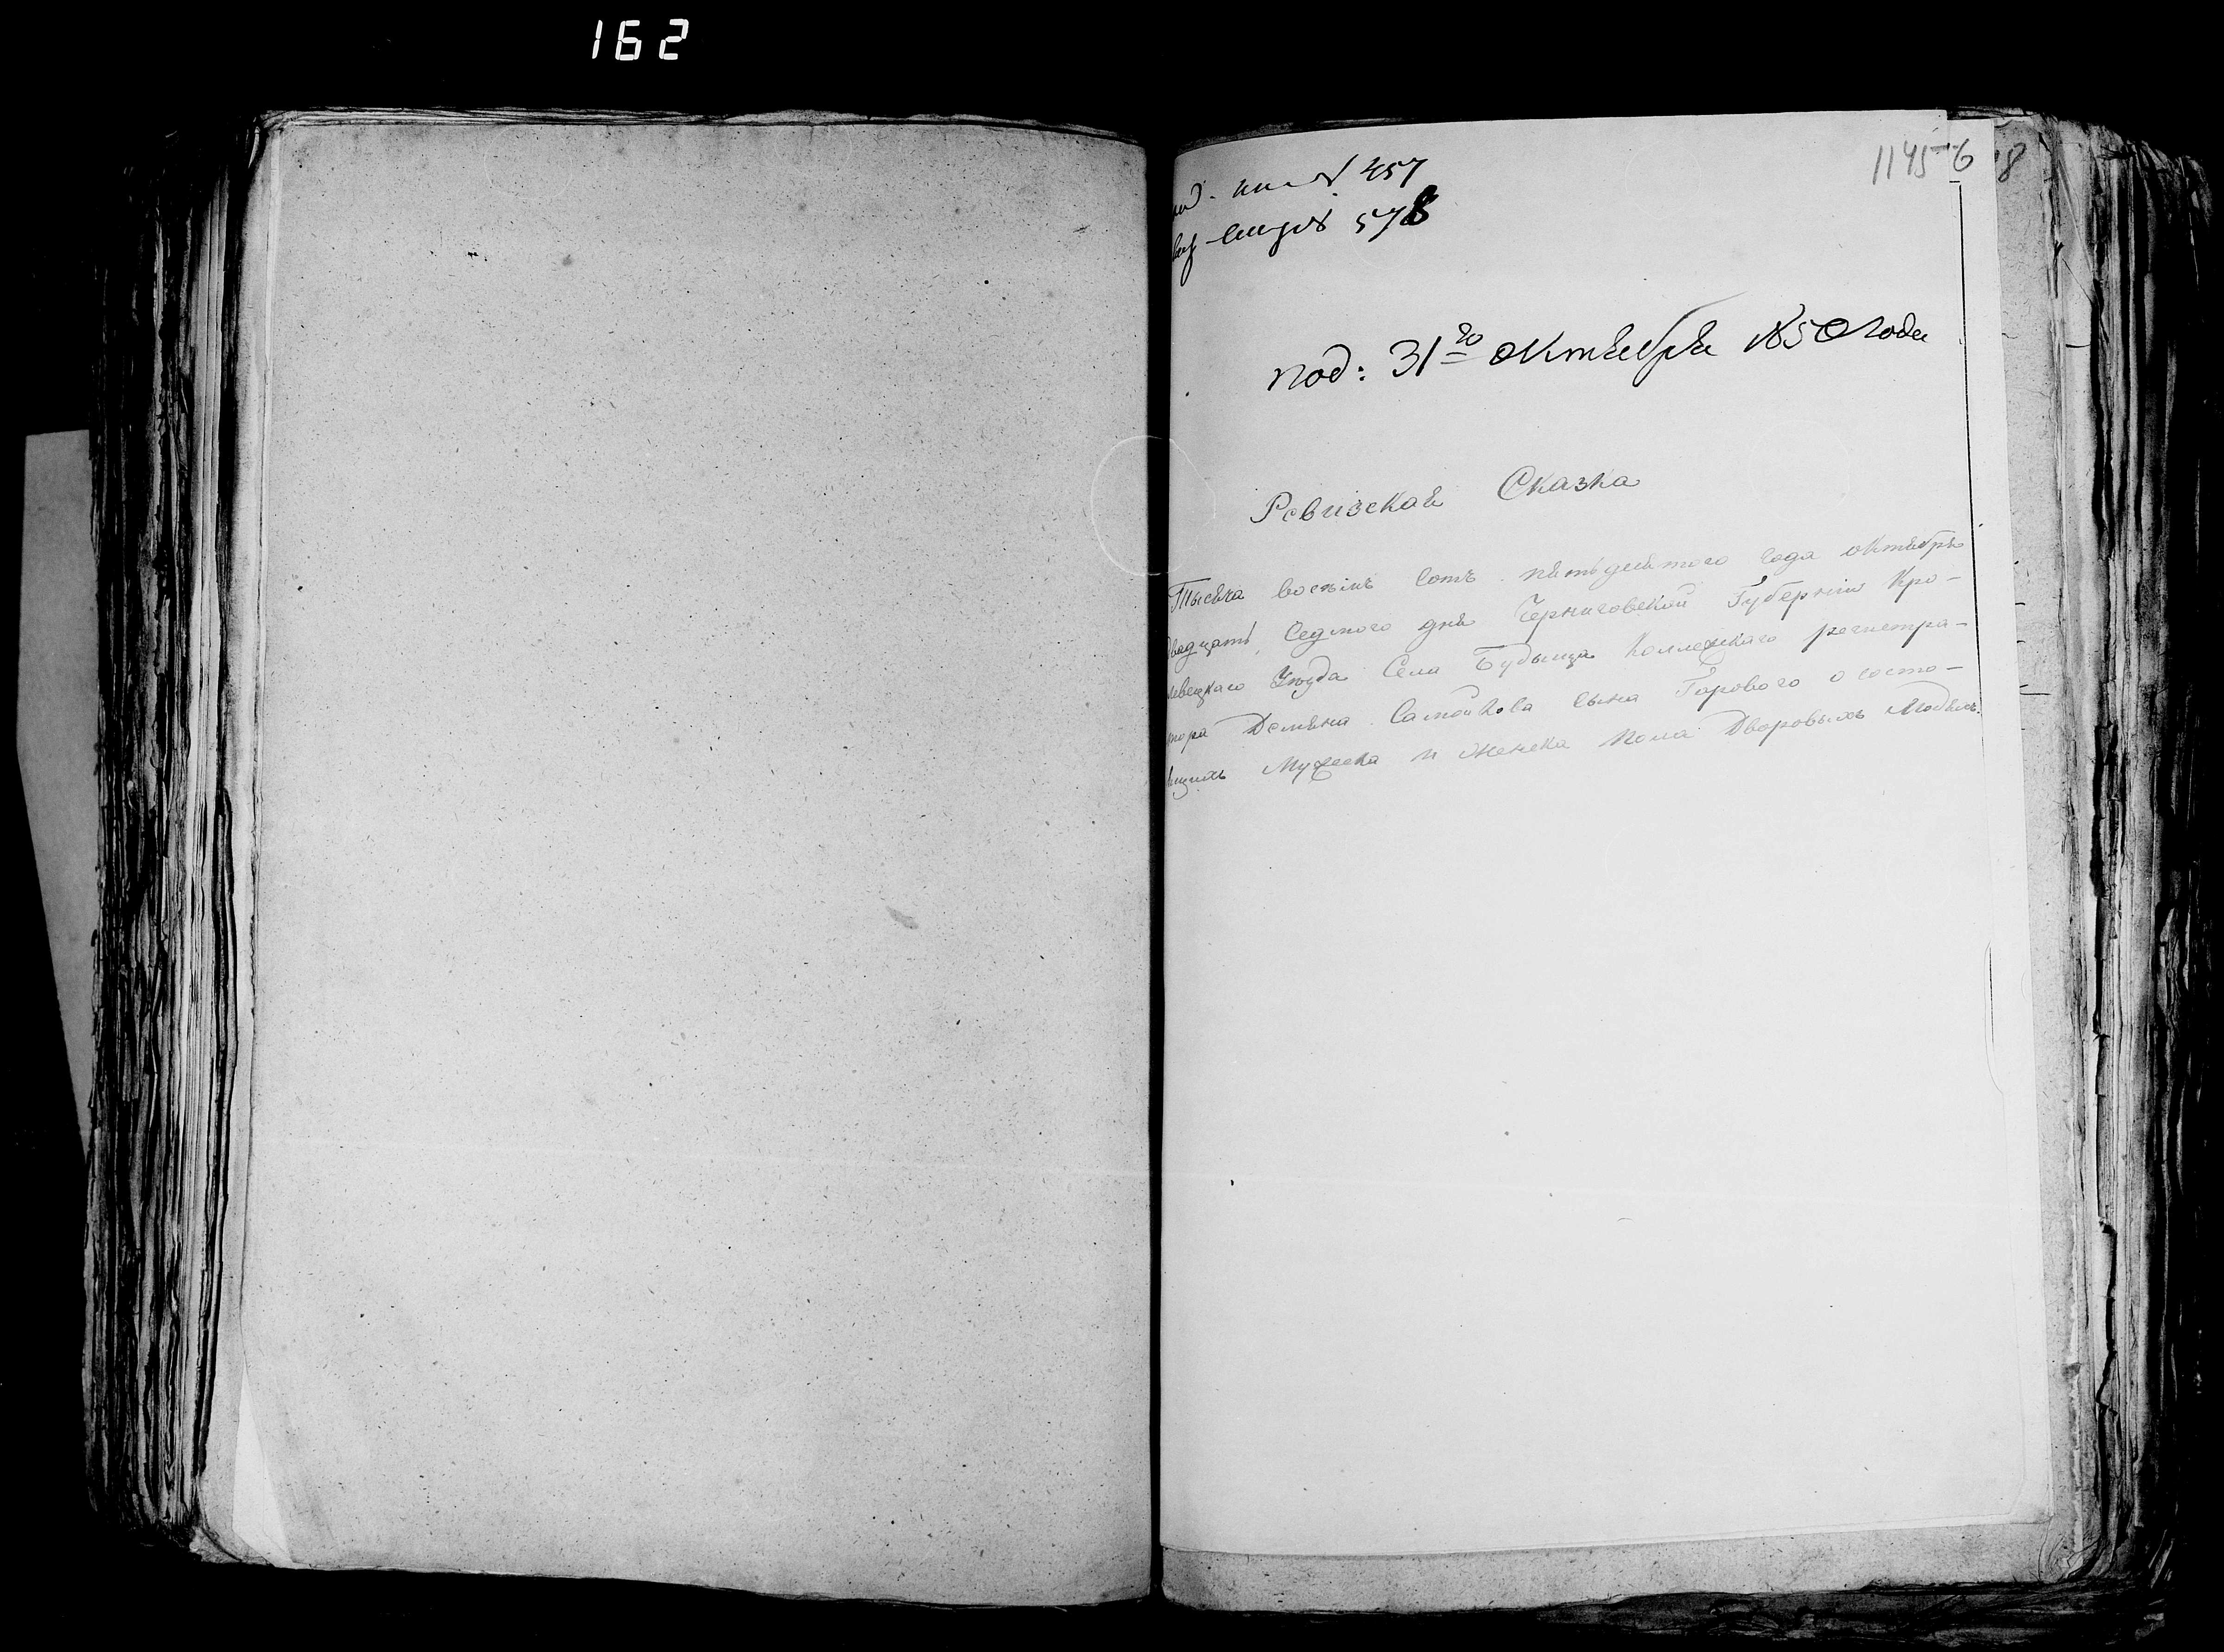 162
1145 6 18
457
578
под: 31го октября 1850 года
Ревизская Сказка
Тысяча восѣмъ сотъ пятьдесятого года октября
двадцать седмого дня Черниговской Губернии Кро-
левецкаго Уѣзда Села Будища Коллежскаго регистра-
тора Демяна Самойлова сына Горового о состо-
ящихъ Мужеска и женска пола Дворовыхъ Людѣхъ.